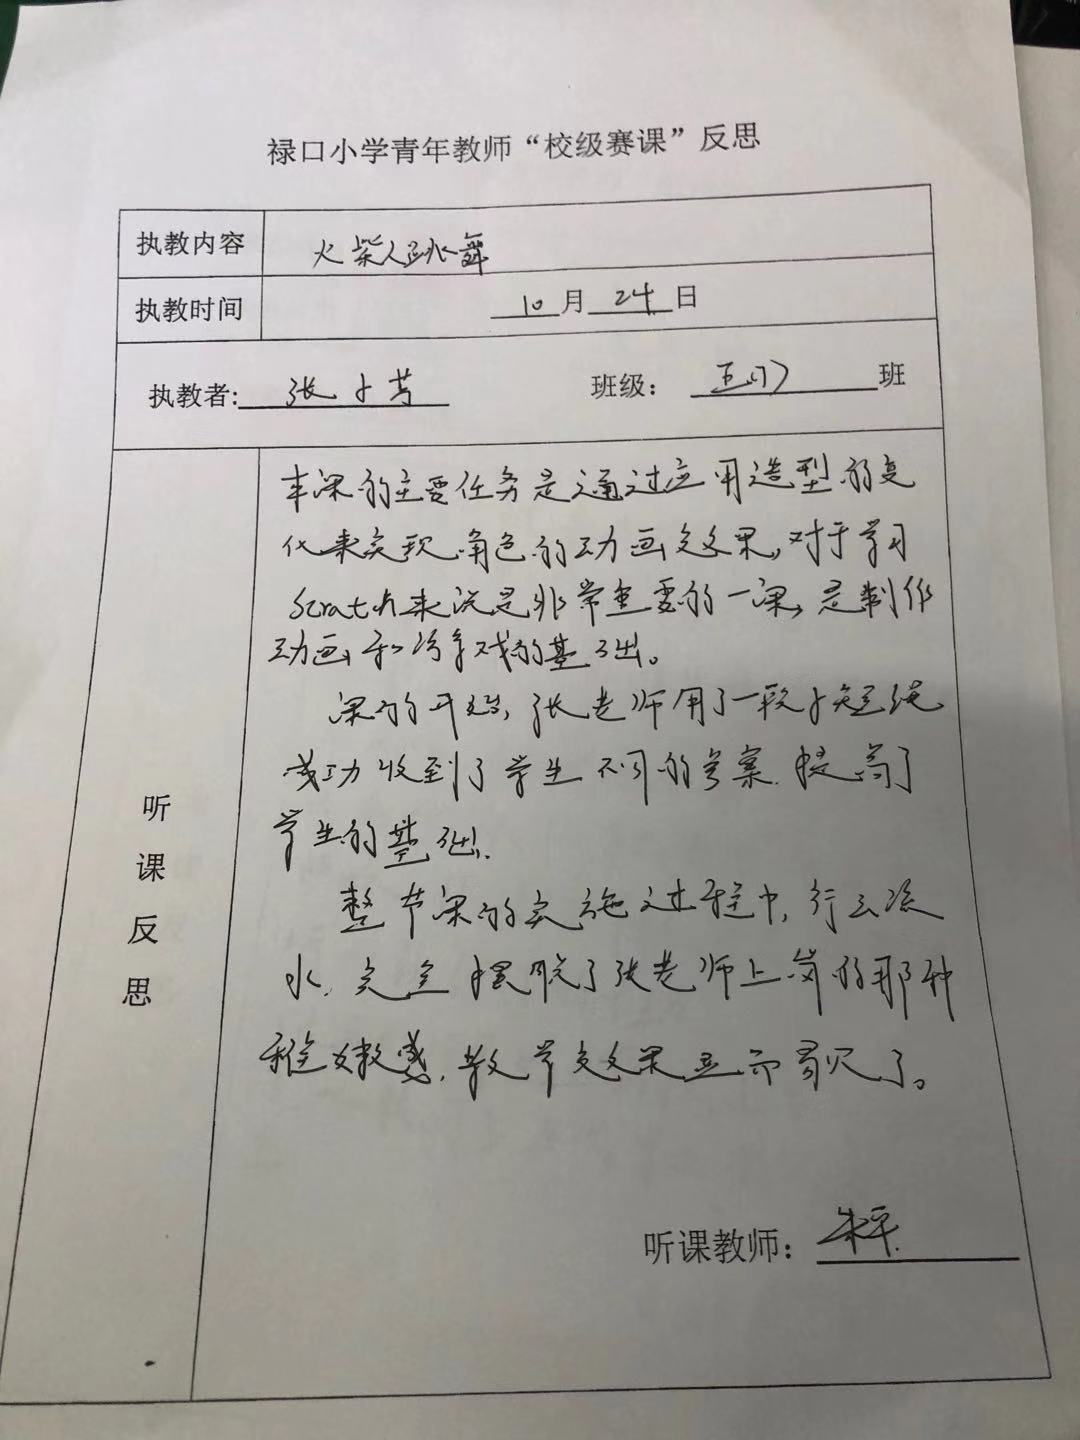 禄口小学青年教师“校级赛课”反思
执教内容 火柴人跳舞
执教时间 10月24日
执教者: 张小芳 班级: 五(1) 班
听课反思
本课的主要任务是通过应用造型的变
化来实现角色的动画效果,对于学习
Scratch来说是非常重要的一课,是制作
动画和游戏的基础。
课的开始,张老师用了一段小短绳
成功收到了学生不同的答案.提高了
学生的基础.
整节课的实施过程中,行云流
水.完全摆脱了张老师上岗的那种
稚嫩感,教学效果显而易见了。
听课教师: 朱平